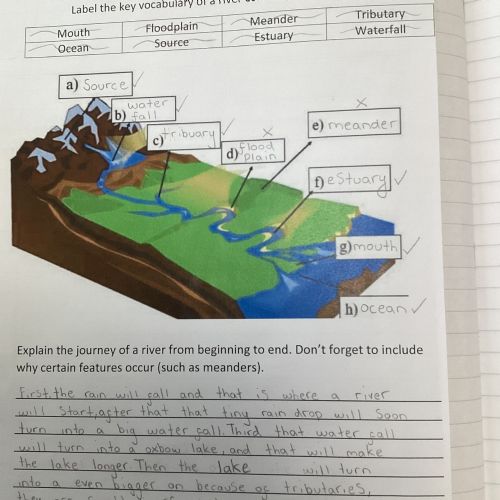 Label the key vocabulary of a river
Mouth Floodplain Meander Tributary
Ocean Source Estuary Waterfall
a) Source
b) water fall
c) tribuary
d) flood plain
e) meander
f) eStuary
g) mouth
h) ocean
Explain the journey of a river from beginning to end. Don't forget to include
why certain features occur (such as meanders).
First, the rain will fall and that is where a river
will Start, after that that tiny rain drop will Soon
turn into a big water fall. Third that water fall
will turn into a oxbow lake, and that will make
the lake longer. Then the lake will turn
into a even bigger on because oc tributaries,